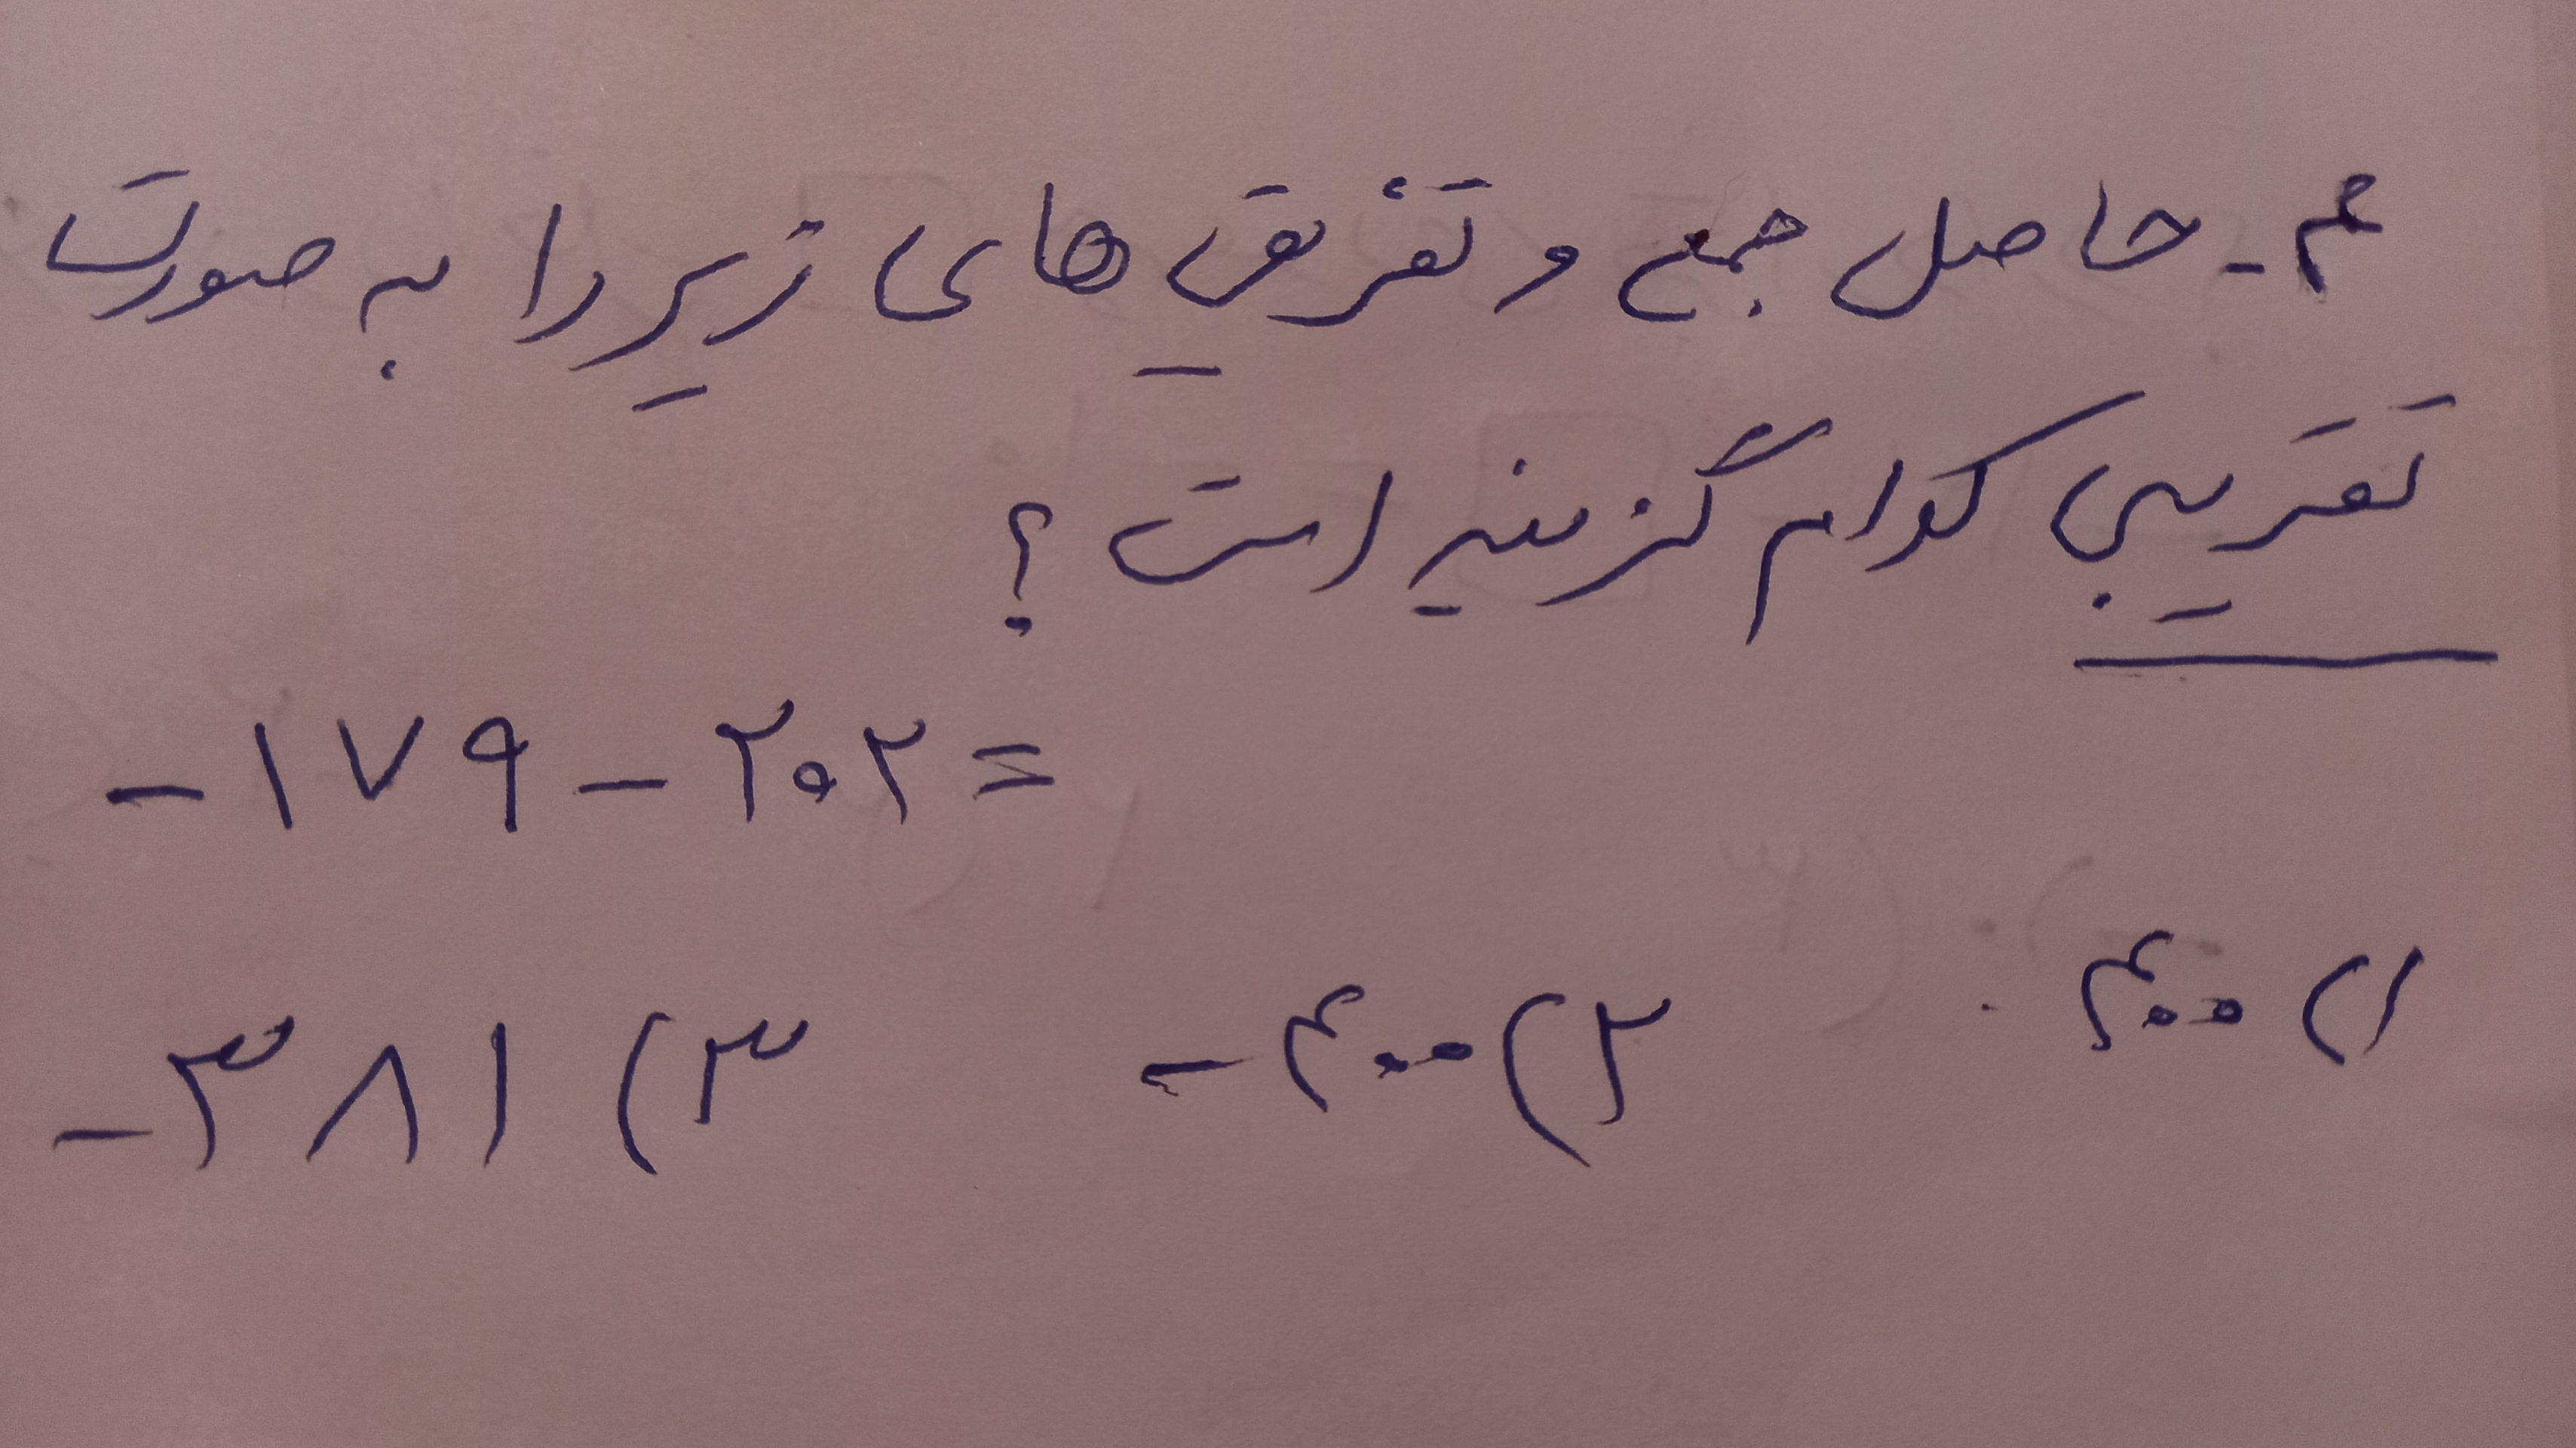 ۴- حاصل جمع و تفریق های زیر را به صورت
تقریبی کدام گزینه است؟
-۱۷۹-۲۰۲=
۱) ۴۰۰ ۲) -۴۰۰ ۳) -۳۸۱